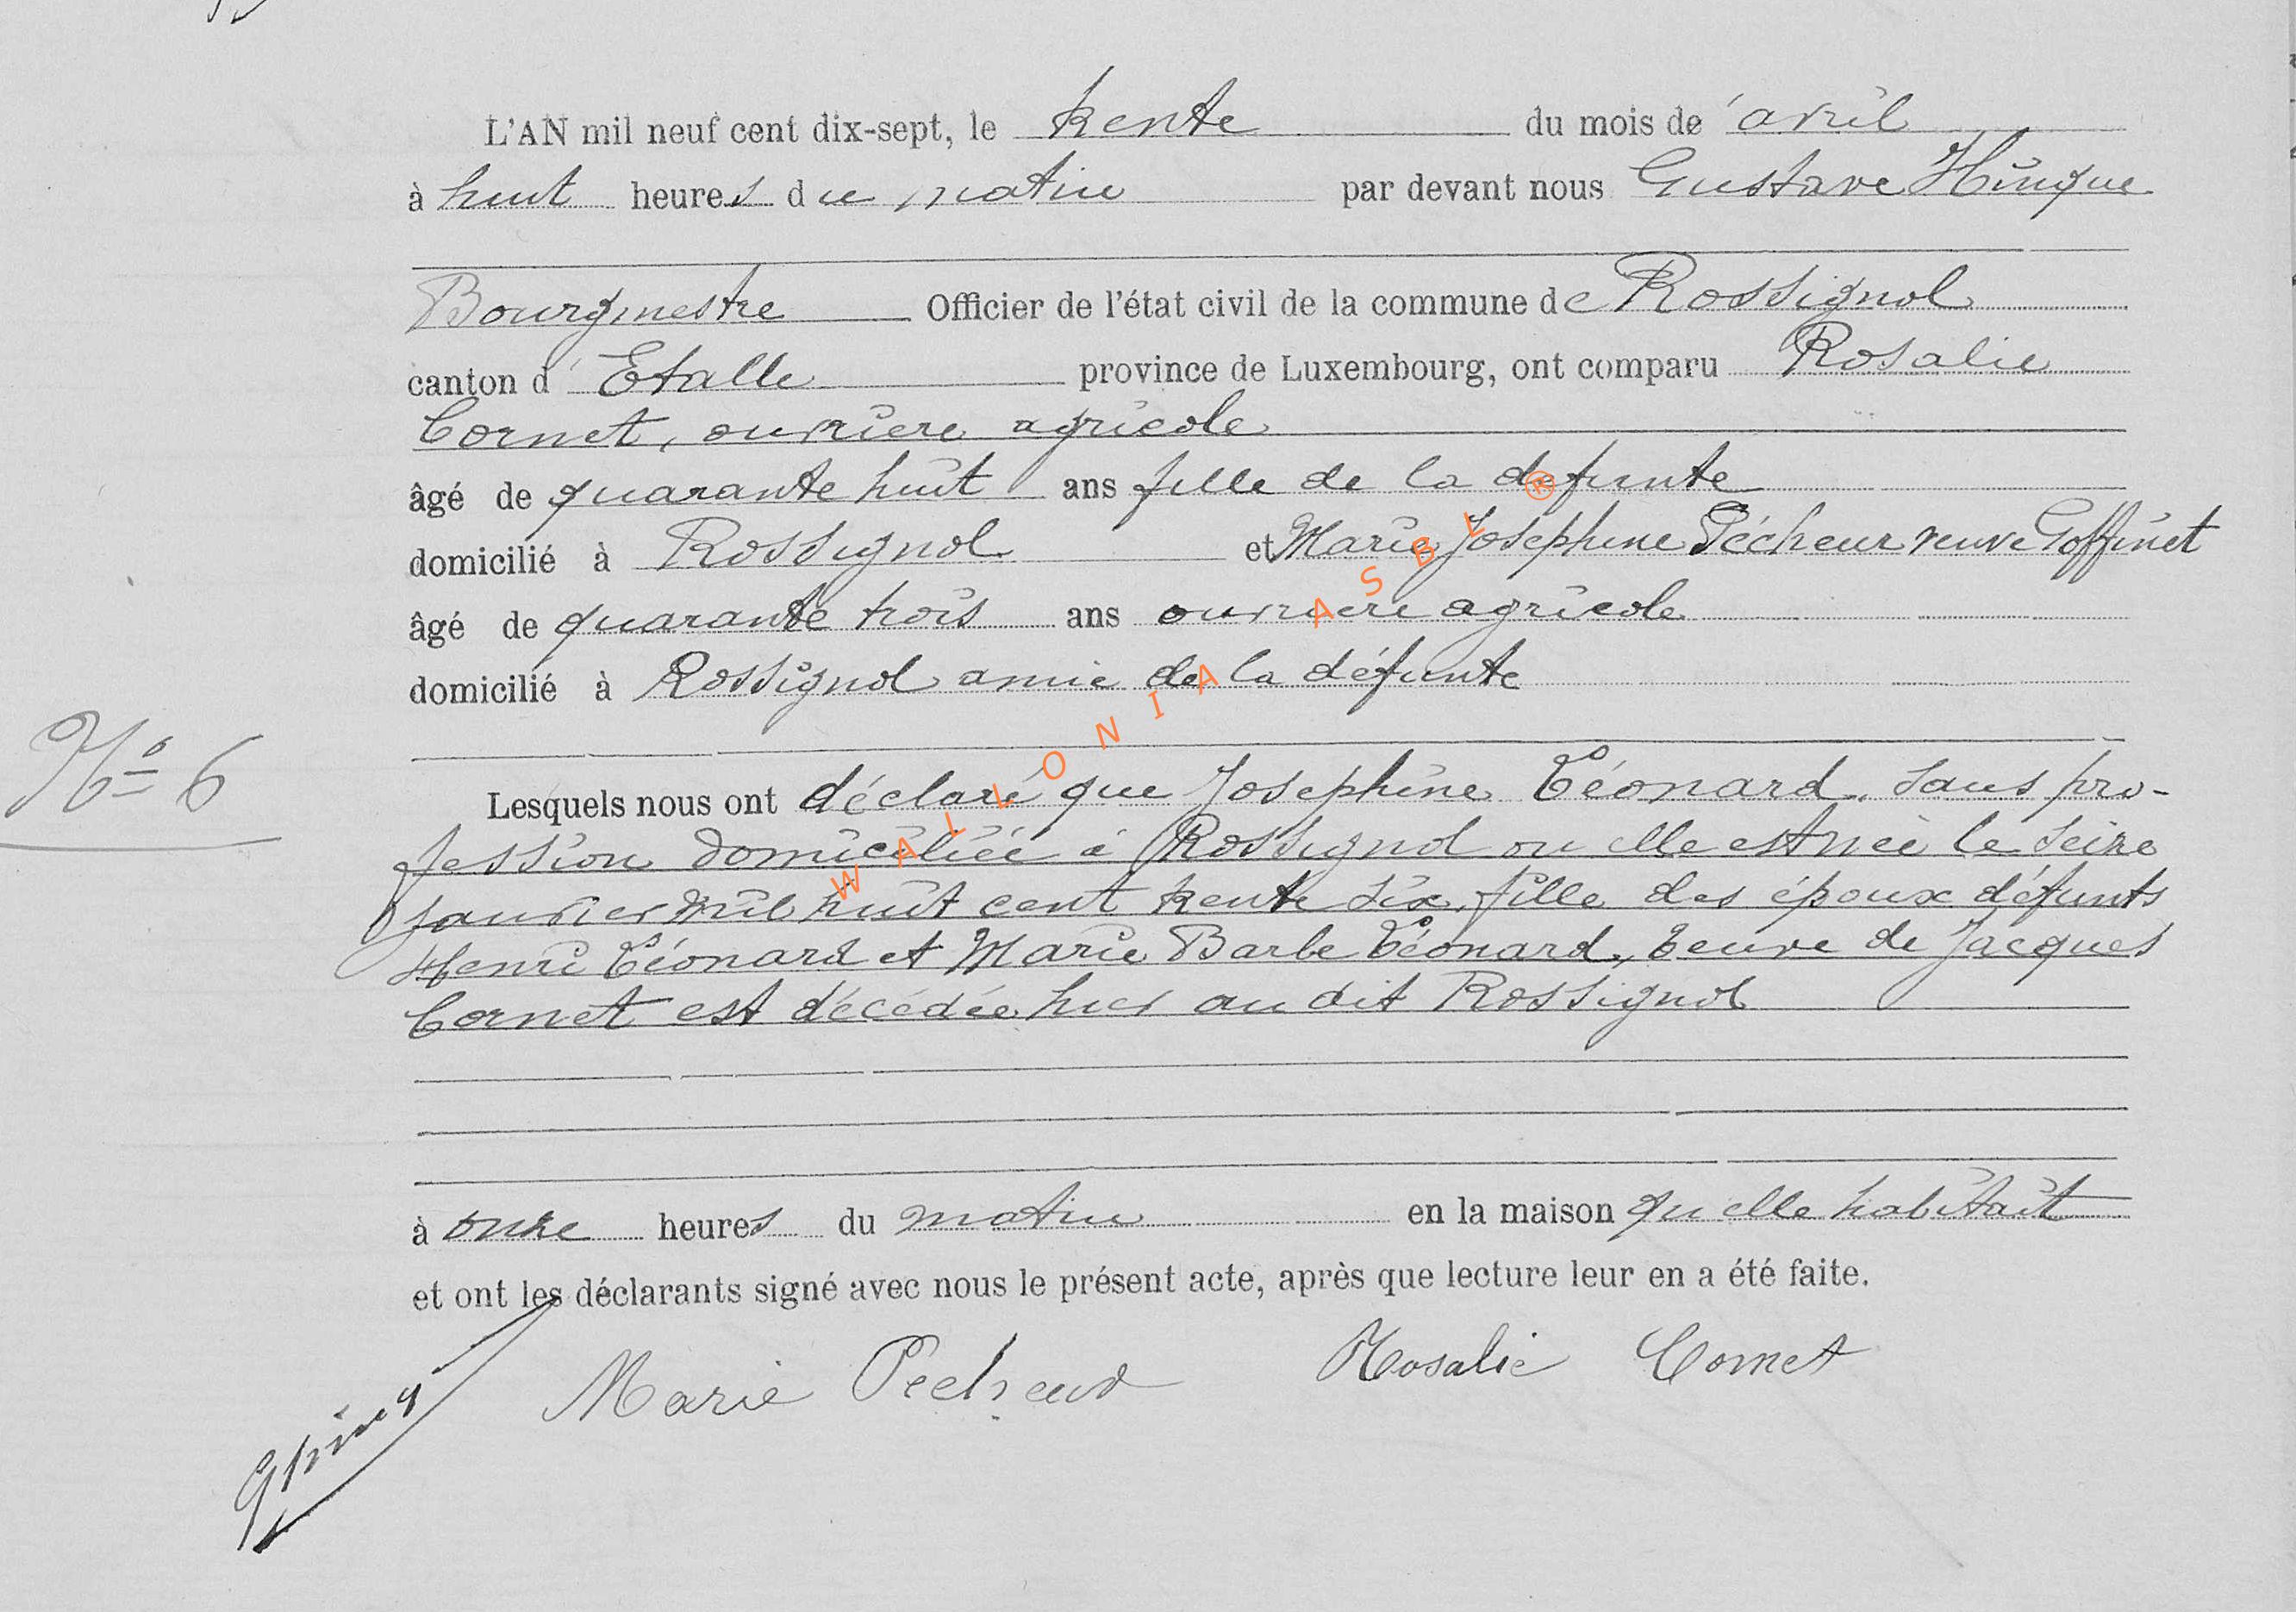 L'AN mil neuf cent dix-sept, le trente du mois de avril
à huit heures du matin par devant nous Gustave Hinque
Bourgmestre Officier de l'état civil de la commune de Rossignol
canton d'Etalle province de Luxembourg, ont comparu Rosalie
Cornet, ouvrière agricole
âgé de quarante huit ans fille de la defunte
domicilié à Rossignol et Marie Josephine Pécheur veuve Goffinet
âgé de quarante trois ans ouvriere agricole
domicilié à Rossignol amie de la défunte
No 6
Lesquels nous ont déclaré que Josephine Léonard, sans pro-
fession domiciliée à Rossignol ou elle est née le seize
janvier mil huit cent trente six, fille des époux défunts
Henri Léonard et Marie Barbe Léonard, veuve de Jacques
Cornet est décédée hier au dit Rossignol
à onze heures du matin en la maison qu'elle habitait
et ont les déclarants signé avec nous le présent acte, après que lecture leur en a été faite.
Marie Pecheur Rosalie Cornet
WALLONIA ASBL ®